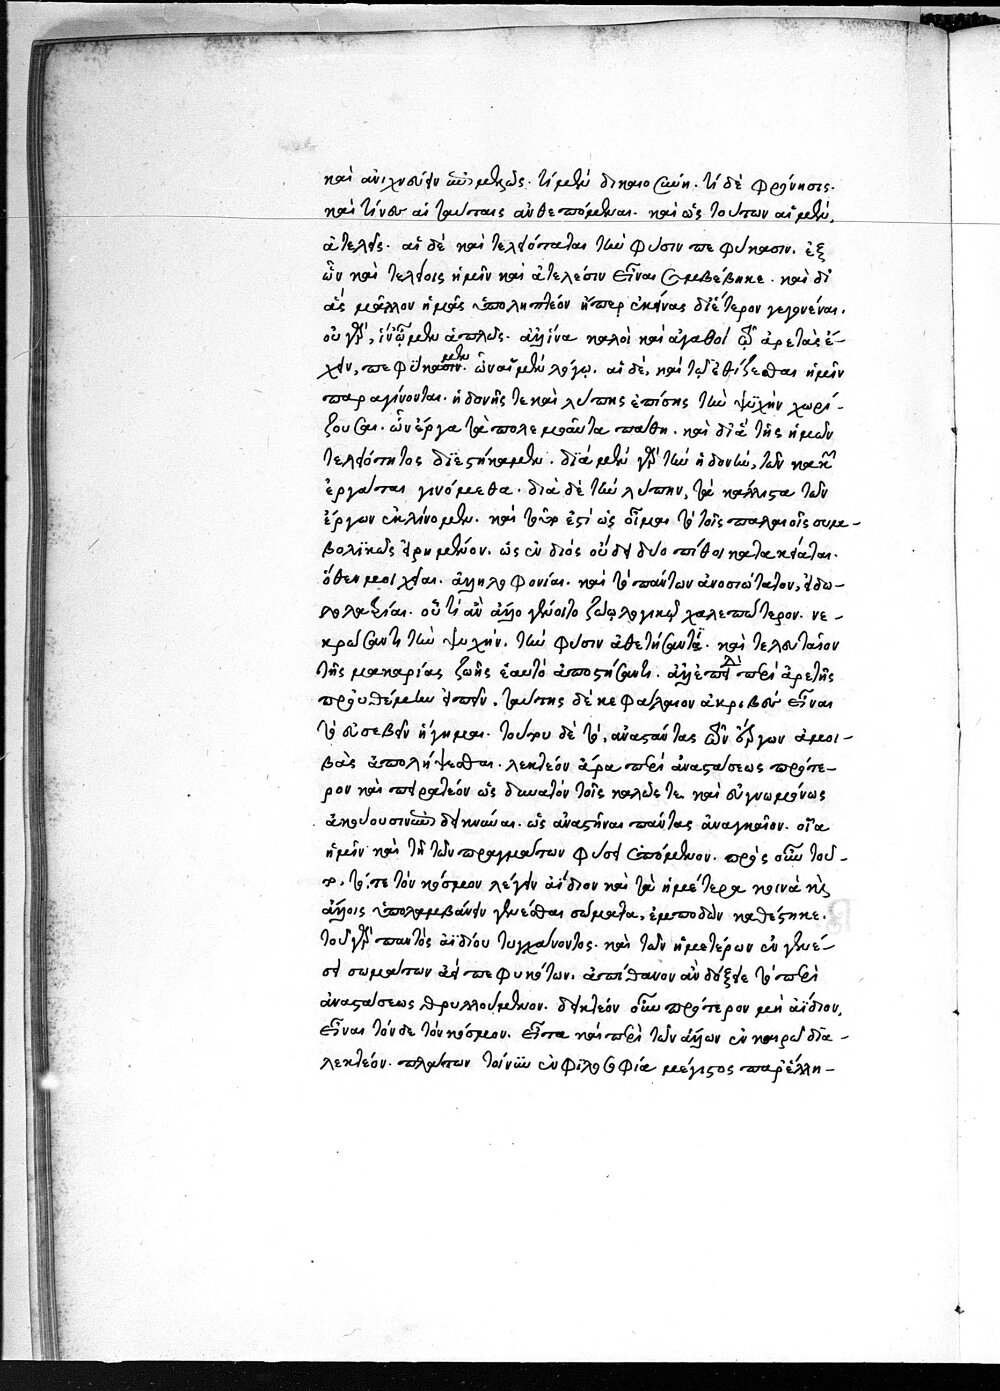 καὶ ἀνιχνεύειν ἀμέμπτως. τί μὲν δικαιοσύνη. τί δὲ φρόνησις.
καὶ τίνες αἱ ταύταις ἀνθεπόμεναι. καὶ ὡς τούτων αἱ μὲν,
ἀτελεῖς. αἱ δὲ καὶ τελειόταται τὴν φύσιν πεφύκασιν. ἐξ
ὧν καὶ τελείοις ἡμῖν καὶ ἀτελέσιν εἶναι συμβέβηκε. καὶ δι
ἃς μᾶλλον ἡμᾶς ὑποληπτέον ἤπερ ἐκείνας δι' ἕτερον γεγονέναι.
οὐ γὰρ, ἵν' ὦμεν ἁπλῶς. ἀλλ' ἵνα καλοὶ καὶ ἀγαθοὶ τῷ ἀρετὰς ἔ-
χειν, πεφύκαμεν. ὧν αἱ μὲν λόγω. αἱ δὲ, καὶ τῷ ἐθίζεσθαι ἡμῖν
παραγίνονται. ἡδονῆς τε καὶ λύπης ἐπίσης τὴν ψυχὴν χωρί-
ζουσαι. ὧν ἔργα τὰ πολεμοῦντα πάθη. καὶ διὰ τῆς ἡμῶν
τελειότητος διεστήκαμεν. διὰ μὲν γὰρ τὴν ἡδονὴν, τῶν κακῶν
ἐργάται γινόμεθα. διὰ δὲ τὴν λύπην, τὰ κάλλιστα τῶν
ἔργων ἐκκλίνομεν. καὶ τοῦτ' ἐστὶ ὡς οἶμαι τὸ τοῖς παλαιοῖς συμ-
βολικῶς εἰρημένον. ὡς ἐν διὸς οὔδει δύο πίθοι κατακείαται.
ὅθεν μοιχεῖαι. ἀλληλοφονίαι. καὶ τὸ πάντων ἀνοσιώτατον, εἰδω-
λολατρεῖαι. οὗ τί ἂν ἄλλο γένοιτο ζώῳ λογικῷ χαλεπώτερον. νε-
κρώσαντι τὴν ψυχήν. τὴν φύσιν ἀθετήσαντι. καὶ τελευταῖον
τῆς μακαρίας ζωῆς ἑαυτὸ ἀποστήσαντι. ἀλλ' ἐπεὶ περὶ ἀρετῆς
προυθέμεθα εἰπεῖν. ταύτης δὲ κεφάλαιον ἀκριβὲς εἶναι
τὸ εὐσεβεῖν ἥγημαι. τούτου δὲ τὸ, ἀναστάντας τῶν ἔργων ἀμοι-
βὰς ἀπολήψεσθαι. λεκτέον ἄρα περὶ ἀναστάσεως πρότε-
ρον καὶ πειρατέον ὡς δυνατὸν τοῖς καλῶς τε καὶ εὐγνωμόνως
ἀκούουσιν ἀποδεικνύναι. ὡς ἀναστῆναι πάντας ἀναγκαῖον. οἷα
ἡμῖν καὶ τῇ τῶν πραγμάτων φύσει ἑπόμενον. πρὸς οὖν τοῦ-
το, τό, τε τὸν κόσμον λέγειν ἀΐδιον καὶ τὰ ἡμέτερα κοινὰ τοῖς
ἄλλοις ὑπολαμβάνειν γενέσθαι σώματα, ἐμποδὼν καθέστηκε.
τοῦ γὰρ παντὸς ἀϊδίου τυγχάνοντος. καὶ τῶν ἡμετέρων ἐν γενέ-
σει σωμάτων ἀεὶ πεφυκότων. ἀπίθανον ἂν δόξειε τὸ περὶ
ἀναστάσεως θρυλλούμενον. δεικτέον οὖν πρότερον μὴ ἀΐδιον,
εἶναι τόνδε τὸν κόσμον. εἶτα καὶ περὶ τῶν ἄλλων ἐν καιρῷ δια-
λεκτέον. πλάτων τοίνυν ἐν φιλοσοφία μέγιστος παρ' ἕλλη-